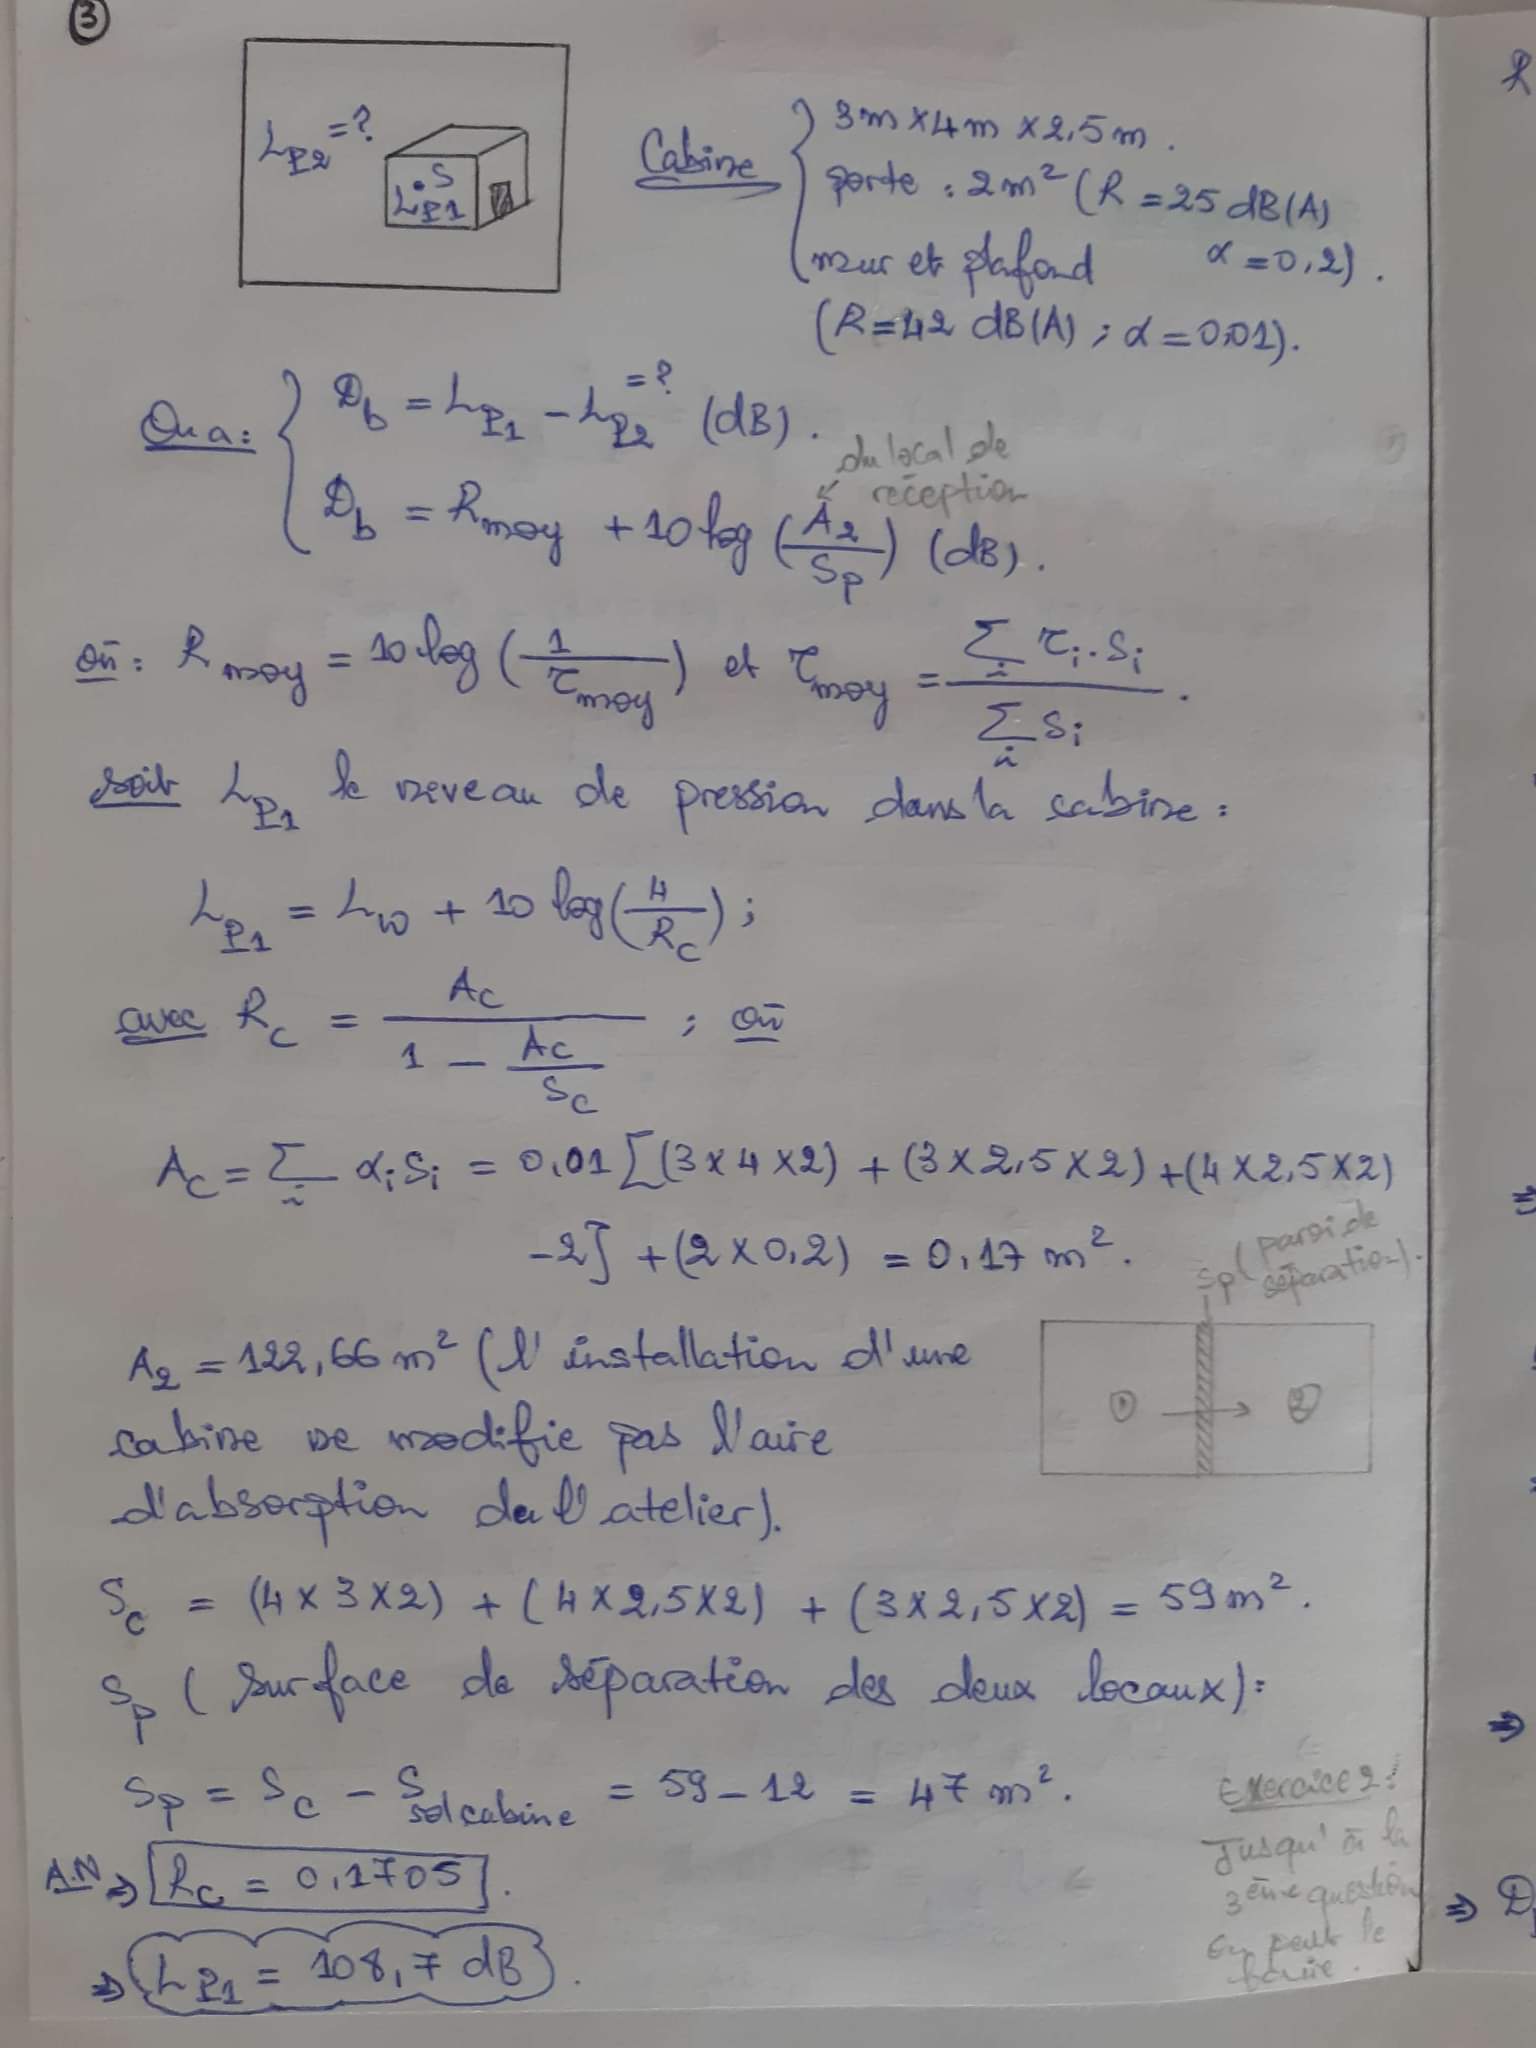 3
L_P2 = ?
.S
L_P1
Cabine { 3m x 4m x 2,5m.
porte : 2m² (R = 25 dB(A)
α = 0,2).
mur et plafond
(R = 42 dB(A) ; α = 0,01).
On a : { D_b = L_P1 - L_P2 (dB).
= ?
du local de
réception
D_b = R_moy + 10 log (A_2 / S_p) (dB).
où : R_moy = 10 log (1 / τ_moy) et τ_moy = Σ_i τ_i . S_i / Σ_i S_i .
soit L_P1 le niveau de pression dans la cabine :
L_P1 = L_W + 10 log (4 / R_C) ;
avec R_C = A_C / (1 - A_C / S_C) ; où
A_C = Σ_i α_i S_i = 0,01 [(3 x 4 x 2) + (3 x 2,5 x 2) + (4 x 2,5 x 2)
-2] + (2 x 0,2) = 0,17 m².
Sp (paroi de
séparation).
A_2 = 122,66 m² (l'installation d'une
cabine ne modifie pas l'aire
d'absorption de l'atelier).
1 → 2
S_C = (4 x 3 x 2) + (4 x 2,5 x 2) + (3 x 2,5 x 2) = 59 m².
S_p (surface de séparation des deux locaux) :
S_p = S_C - S_sol cabine = 59 - 12 = 47 m².
A.N ⇒ R_C = 0,1705 .
⇒ L_P1 = 108,7 dB .
Exercice 2 :
Jusqu'à la
3ème question
on peut le
faire.
R
⇒
⇒
⇒ D